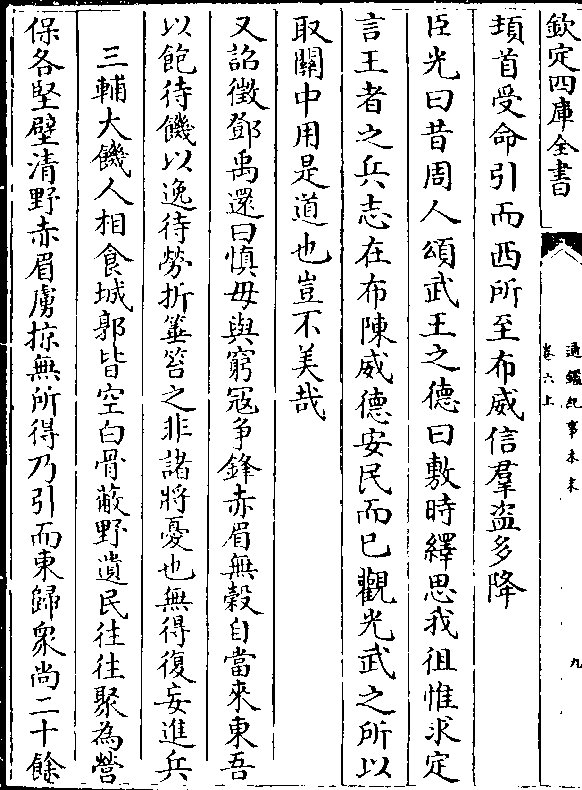 欽定四庫全書
通鑑紀事本末
卷六上
九
頓首受命引而西所至布威信羣盗多降
臣光曰昔周人頌武王之德曰敷時繹思我徂惟求定
言王者之兵志在布陳威德安民而已觀光武之所以
取關中用是道也豈不美哉
又詔徵鄧禹還曰慎毋與窮冦争鋒赤眉無榖自當來東吾
以飽待饑以逸待勞折箠笞之非諸將憂也無得復妄進兵
三輔大饑人相食城郭皆空白骨蔽野遺民往往聚為營
保各堅壁清野赤眉虜掠無所得乃引而東歸衆尚二十餘